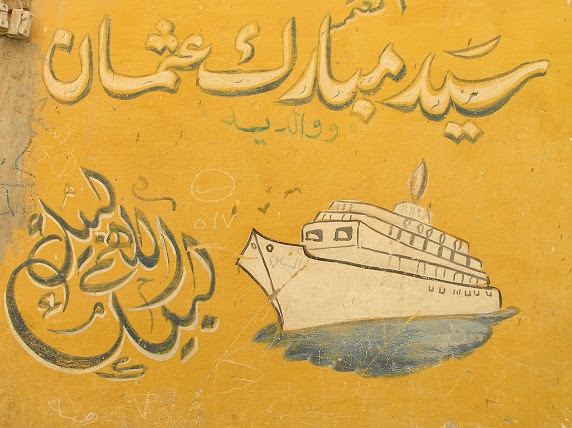 سيد مبارك عثمان
ووالديه
لبيك
اللهم
لبيك